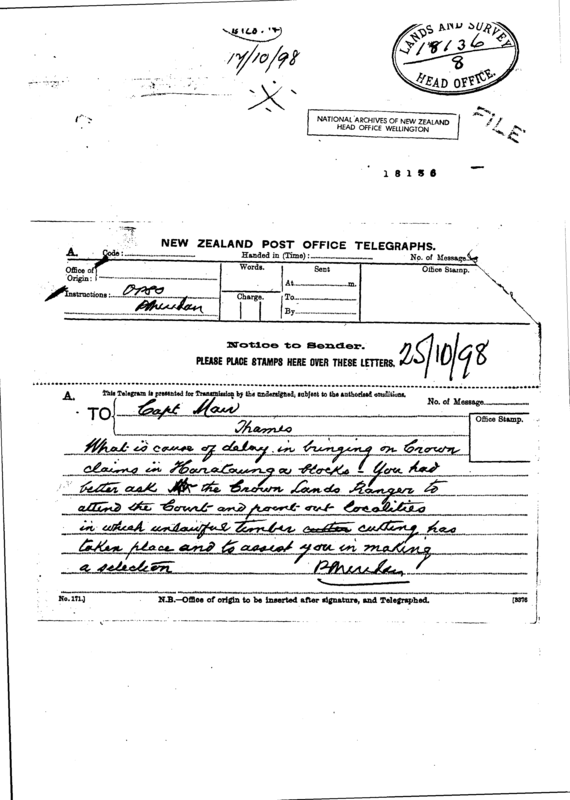 17/10/98
LANDS AND SURVEY
18136
8
HEAD OFFICE.
NATIONAL ARCHIVES OF NEW ZEALAND
HEAD OFFICE WELLINGTON
FILE
18136
NEW ZEALAND POST OFFICE TELEGRAPHS.
A. Code: Handed in (Time): No. of Message
Office of Origin:
Words.
Sent
Office Stamp.
At m.
Instructions: OPSO
Charge.
To
PSheridan
By
Notice to Sender.
PLEASE PLACE STAMPS HERE OVER THESE LETTERS.
25/10/98
A. This Telegram is presented for Transmission by the undersigned, subject to the authorised conditions.
No. of Message
TO Capt Mair
Office Stamp.
Thames
What is cause of delay in bringing on Crown
claims in Harataunga blocks - You had
better ask the Crown Lands Ranger to
attend the Court and point out localities
in which unlawful timber cutten cutting has
taken place and to assist you in making
a selection PSheridan
No. 171.] N.B.—Office of origin to be inserted after signature, and Telegraphed. [3376